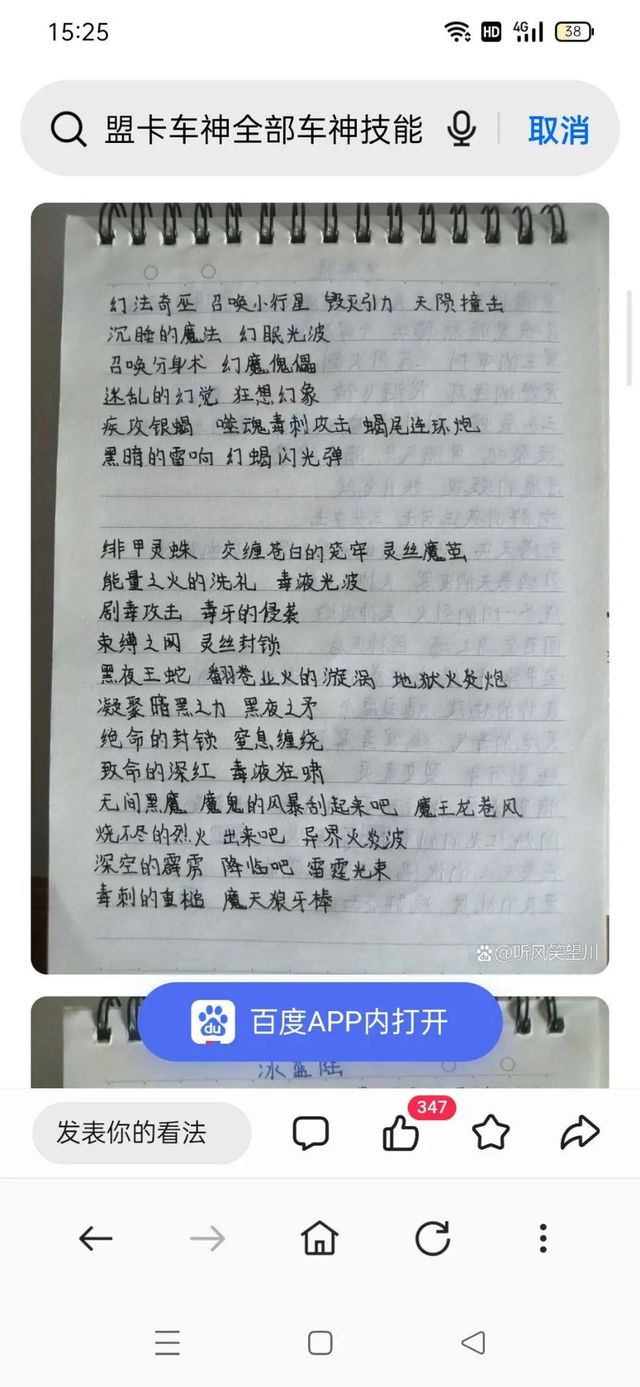 15:25
HD 4G 38
盟卡车神全部车神技能 取消
幻法奇巫 召唤小行星 毁灭引力 天陨撞击
沉睡的魔法 幻眠光波
召唤分身术 幻魔傀儡
迷乱的幻觉 狂想幻象
疾攻银蝎 噬魂毒刺攻击 蝎尾连环炮
黑暗的雷响 幻蝎闪光弹
绯甲灵蛛 交缠苍白的窀牢 灵丝魔茧
能量之火的洗礼 毒液光波
剧毒攻击 毒牙的侵袭
束缚之网 灵丝封锁
黑夜王蛇 翻卷业火的漩涡 地狱火焰炮
凝聚暗黑之力 黑夜之矛
绝命的封锁 窒息缠绕
致命的深红 毒液狂啸
无间黑魔 魔鬼的风暴刮起来吧 魔王龙卷风
烧不尽的烈火 出来吧 异界火炎波
深空的霹雳 降临吧 雷霆光束
毒刺的重槌 魔天狼牙棒
@听风笑望川
du 百度APP内打开
冰蓝陆
发表你的看法 347